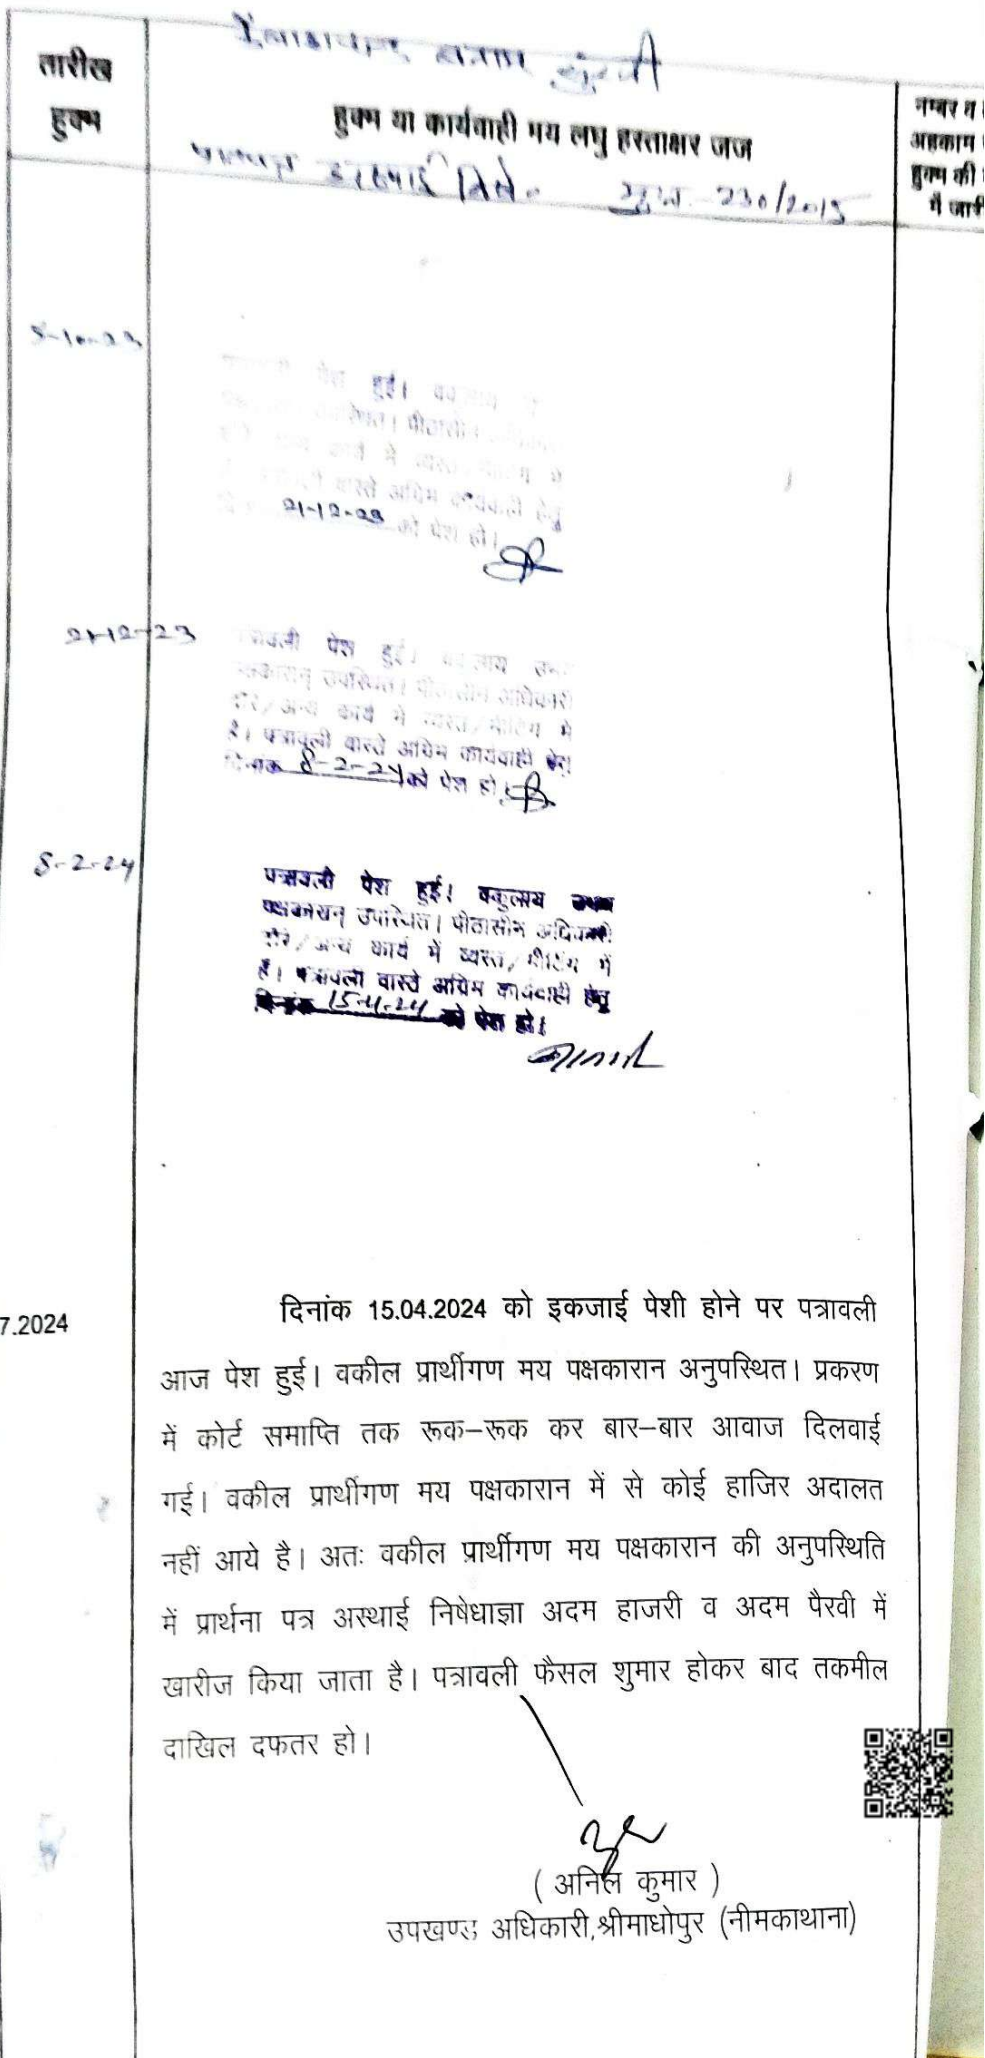 तारीख
हुक्म
बनाम
हुक्म या कार्यवाही मय लघु हस्ताक्षर जज
नम्बर व
अहकाम
हुक्म की
में जारी
230/2015
5-10-23
पेश हुई।
उपस्थित। पीठासीन
कार्य में व्यस्त
वास्ते अग्रिम कार्यवाही हेतु
21-12-23 को पेश हो।
21-12-23
पत्रावली पेश हुई। वकुलाय उभय
पक्षकारान् उपस्थित। पीठासीन अधिकारी
दौरे/अन्य कार्य में व्यस्त/मीटिंग में
है। पत्रावली वास्ते अग्रिम कार्यवाही हेतु
दिनांक 8-2-24 को पेश हो।
8-2-24
पत्रावली पेश हुई। वकुलाय उभय
पक्षकारान् उपस्थित। पीठासीन अधिकारी
दौरे/अन्य कार्य में व्यस्त/मीटिंग में
है। पत्रावली वास्ते अग्रिम कार्यवाही हेतु
दिनांक 15-4-24 को पेश हो।
7.2024
दिनांक 15.04.2024 को इकजाई पेशी होने पर पत्रावली
आज पेश हुई। वकील प्रार्थीगण मय पक्षकारान अनुपस्थित। प्रकरण
में कोर्ट समाप्ति तक रूक–रूक कर बार–बार आवाज दिलवाई
गई। वकील प्रार्थीगण मय पक्षकारान में से कोई हाजिर अदालत
नहीं आये है। अतः वकील प्रार्थीगण मय पक्षकारान की अनुपस्थिति
में प्रार्थना पत्र अस्थाई निषेधाज्ञा अदम हाजरी व अदम पैरवी में
खारीज किया जाता है। पत्रावली फैसल शुमार होकर बाद तकमील
दाखिल दफतर हो।
( अनिल कुमार )
उपखण्ड अधिकारी,श्रीमाधोपुर (नीमकाथाना)